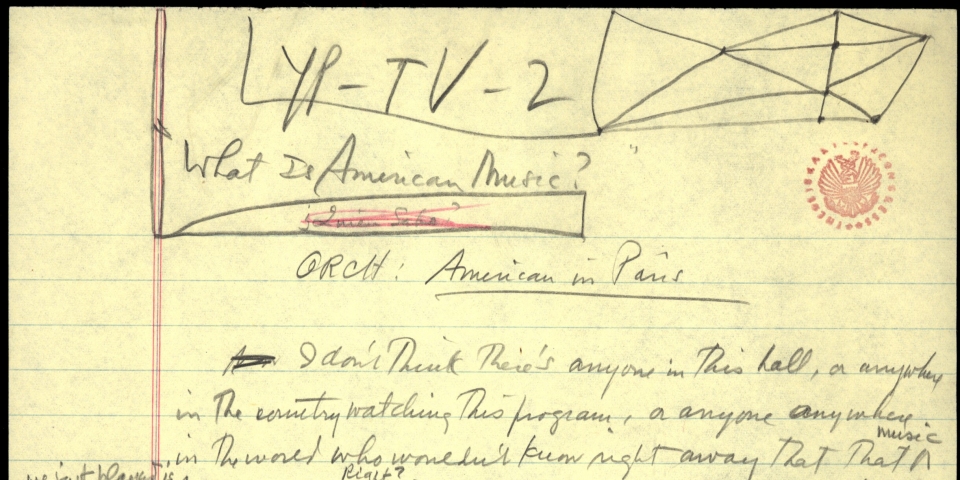 YP-TV-2
What Is American Music?
¿Quién Sabe?
ORCH: American in Paris
I don't think there's anyone in this hall, or anywhere
in the country watching this program, or anyone anywhere
music
in the world who wouldn't know right away that that ^
we just played is
Right?